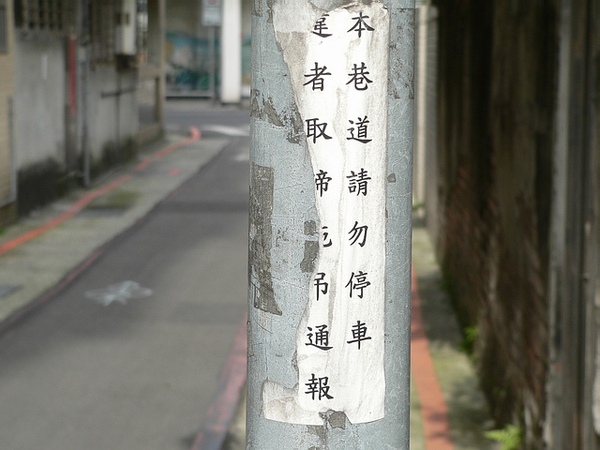 本巷道請勿停車
違者取締拖吊通報